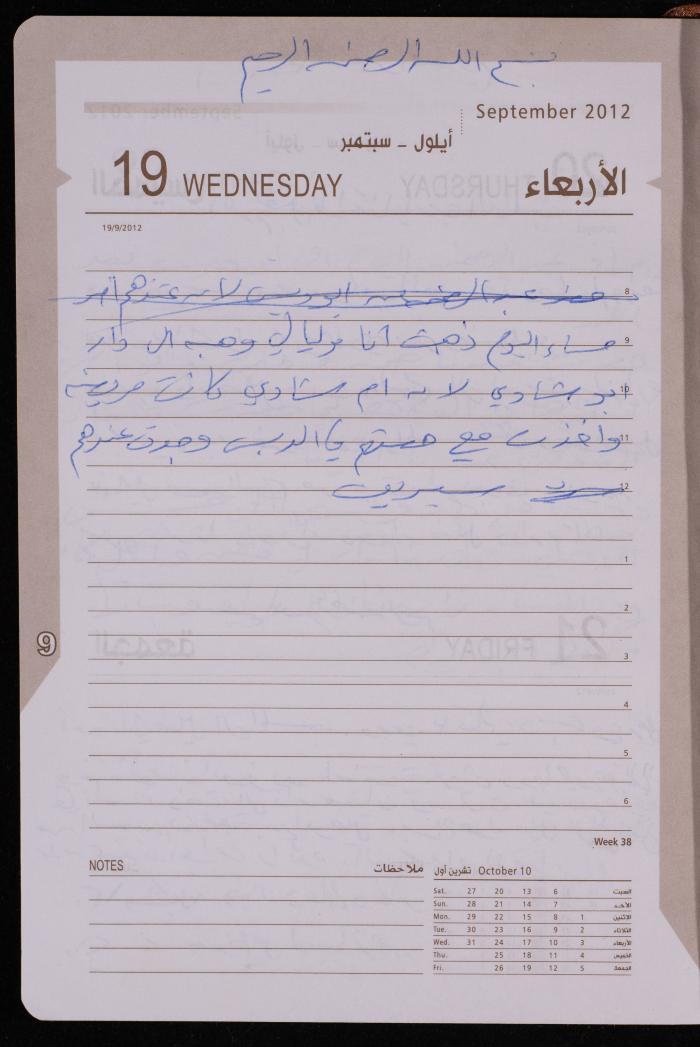 بسم الله الرحمن الرحيم
September 2012
أيلول - سبتمبر
19 WEDNESDAY الأربعاء
19/9/2012
8
9 مساء اليوم ذهبت أنا وليالي وهبه الى دار
10 ابو شادي لانه ام شادي كانت مريضه
11 واخذت معي وجدت عندهم
12 سيرين
1
2
3
4
5
6
9
Week 38
NOTES ملاحظات
تشرين أول October 10
Sat. 27 20 13 6 السبت
Sun. 28 21 14 7 الأحد
Mon. 29 22 15 8 1 الاثنين
Tue. 30 23 16 9 2 الثلاثاء
Wed. 31 24 17 10 3 الأربعاء
Thu. 25 18 11 4 الخميس
Fri. 26 19 12 5 الجمعة